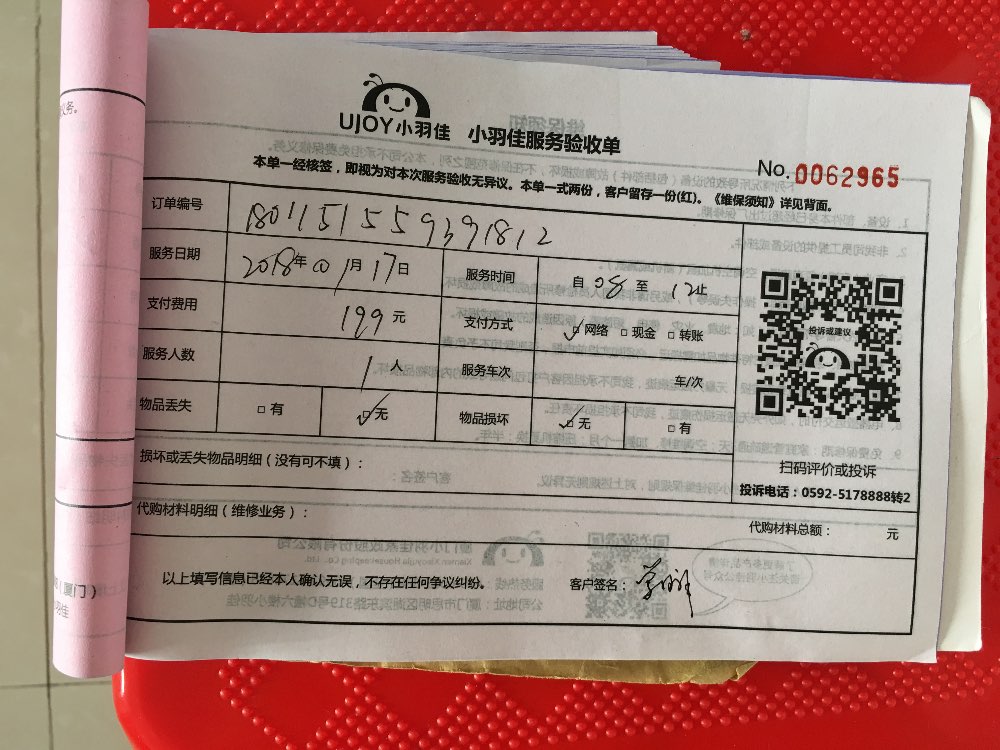 UJOY小羽佳 小羽佳服务验收单
No. 0062965
本单一经核签，即视为对本次服务验收无异议。本单一式两份，客户留存一份(红)。《维保须知》详见背面。
订单编号 1801151559391812
服务日期 2018年01月17日 服务时间 自08至12止
支付费用 199元 支付方式 ☑网络 □现金 □转账
服务人数 1人 服务车次 车/次
物品丢失 □有 ☑无 物品损坏 ☑无 □有
投诉或建议
扫码评价或投诉
投诉电话：0592-5178888转2
损坏或丢失物品明细（没有可不填）：
代购材料明细（维修业务）： 代购材料总额： 元
以上填写信息已经本人确认无误，不存在任何争议纠纷。 客户签名：